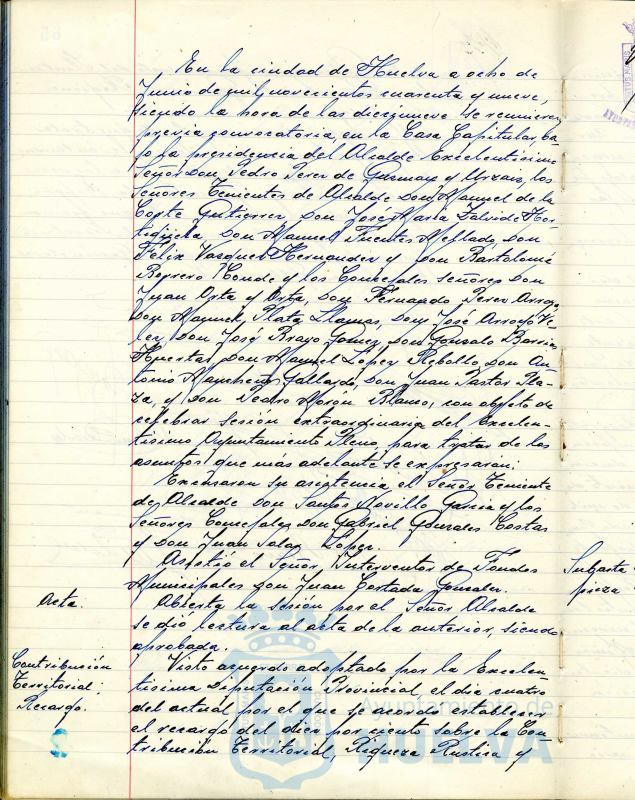 En la ciudad de Huelva a ocho de
Junio de mil novecientos cuarenta y nueve,
siendo la hora de las diecinueve se reunieron
previa convocatoria, en la Casa Capitular, ba-
jo la presidencia del Alcalde Excelentísimo
Señor Don Pedro Perez de Guzman y Urzaiz, los
Señores Tenientes de Alcalde Don Manuel de la
Corte Gutierrez, Don José Maria Zalvide Hor-
Don Manuel Fuentes Mellado, Don
Félix Vasquez Hernandez y Don Bartolomé
Borrero Conde y los Concejales Señores Don
Juan Orta y Orta, Don Fernando Perez Arroyo
Don Manuel Plata Llamas, Don José Arroyo Ve-
lez, Don José Bravo Gomez, Don Gonzalo Barrios
Huertas, Don Manuel López Rebollo, Don An-
tonio Gallardo, Don Juan Pastor Pla-
za, y Don Pedro Morón Blanco, con objeto de
celebrar sesión extraordinaria del Excelen-
tísimo Ayuntamiento Pleno, para tratar de los
asuntos que más adelante se expresarán.
Excusaron su asistencia el Señor Teniente
de Alcalde Don Santos Novillo Garcia y los
Señores Concejales Don Gabriel Gonzales Costas
y Don Juan Salas López.
Asistió el Señor Interventor de Fondos
Municipales Don Juan Gonzalez.
Acta.
Abierta la sesión por el Señor Alcalde
se dió lectura al acta de la anterior, siendo
aprobada.
Contribución
Territorial:
Recargo.
Visto acuerdo adoptado por la Excelen-
tísima Diputación Provincial, el día cuatro
del actual por el que se acordó establecer
el recargo del diez por ciento sobre la Con-
tribución Territorial, Riqueza Rustica y
Subasta
pieza
Ayuntamiento de
HUELVA